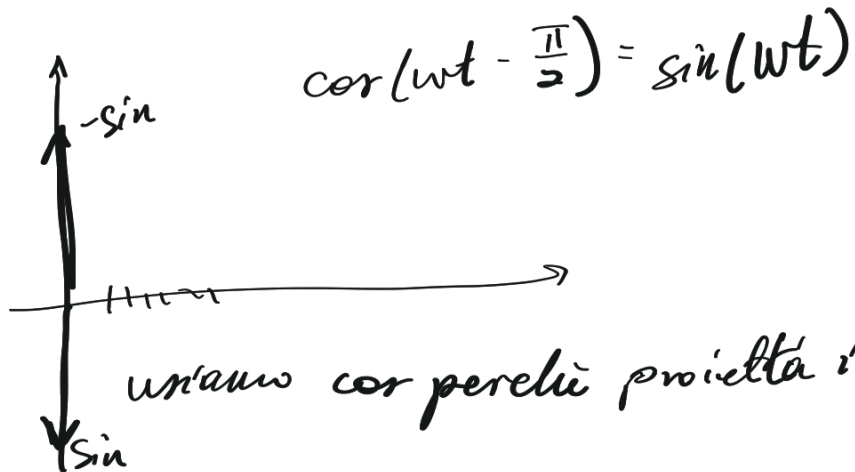 cos(wt - π/2) = sin(wt)
-sin
usiamo cos perchè proietta i
sin